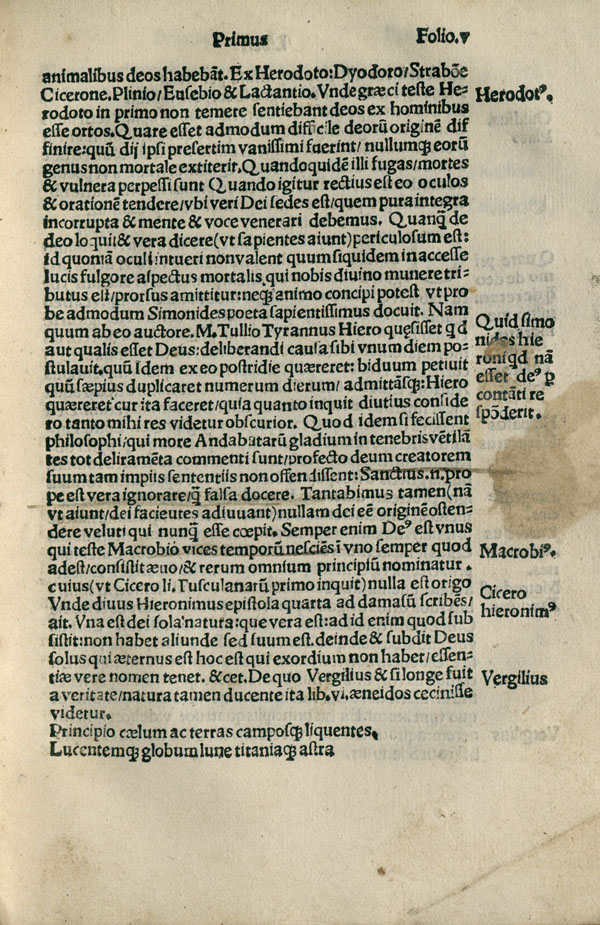 Primus
Folio.v
animalibus deos habebāt. Ex Herodoto: Dyodoro/Strabōe
Cicerone. Plinio/Eusebio & Lactantio. Vnde græci teste He-
rodoto in primo non temere sentiebant deos ex hominibus
esse ortos. Quare esset admodum difficile deorū originē dif
finire: quū dij ipsi presertim vanissimi fuerint/nullumq̨ eorū
genus non mortale extiterit. Quandoquidē illi fugas/mortes
& vulnera perpessi sunt Quando igitur rectius est eo oculos
& orationē tendere/vbi veri Dei sedes est/quem pura integra
incorrupta & mente & voce venerari debemus. Quanq̄ de
deo loqui & vera dicere (vt sapientes aiunt) periculosum est:
id quoniā oculi intueri non valent quum siquidem inaccesse
lucis fulgore aspectus mortalis, qui nobis diuino munere tri-
butus est/prorsus amittitur: neq̨ animo concipi potest vt pro
be admodum Simonides poeta sapientissimus docuit. Nam
quum ab eo auctore. M. Tullio Tyrannus Hiero quęsisset qd
aut qualis esset Deus: deliberandi causa sibi vnum diem po-
stulauit. quū idem ex eo postridie quæreret: biduum petiuit
quū sæpius duplicaret numerum dierum/admittāsq̨: Hiero
quæreret cur ita faceret/quia quanto inquit diutius conside
ro tanto mihi res videtur obscurior. Quod idem si fecissent
philosophi/qui more Andabatarū gladium in tenebris vētilā
tes tot deliramēta commenti sunt/profecto deum creatorem
suum tam impiis sententiis non offendissent: Sanctius .n. pro
pe est vera ignorare/q̄ falsa docere. Tantabimus tamen (nā
vt aiunt/dei facieutes adiuuant) nullam dei eē originē osten-
dere veluti qui nunq̄ esse cœpit. Semper enim Deꝰ est vnus
qui teste Macrobio vices temporū nesciēs ī vno semper quod
adest/consistit æuo/& rerum omnium principiū nominatur.
cuius (vt Cicero li. Tusculanarū primo inquit) nulla est origo
Vnde diuus Hieronimus epistola quarta ad damasū scribēs/
ait. Vna est dei sola natura: que vera est: ad id enim quod sub
sistit: non habet aliunde sed suum est. deinde & subdit Deus
solus qui æternus est hoc est qui exordium non habet/essen-
tiæ vere nomen tenet. & cet. De quo Vergilius & si longe fuit
a veritate/natura tamen ducente ita lib. vi. æneidos cecinisse
videtur.
Principio cælum ac terras camposq̨ liquentes,
Lucentemq̨ globum lune titaniaq̨ astra
Herodotꝰ.
Quid simo
nides hie
roni qd nā
esset deꝰ p
contāti re
spōderit.
Macrobiꝰ.
Cicero
hieronimꝰ
Vergilius